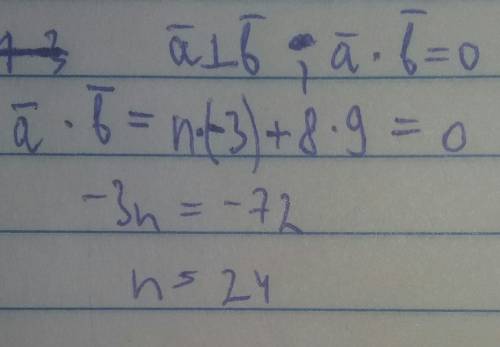 a̅ ⊥ b̅ ; a̅ · b̅ = 0
a̅ · b̅ = n·(-3) + 8 · 9 = 0
-3n = -72
n = 24